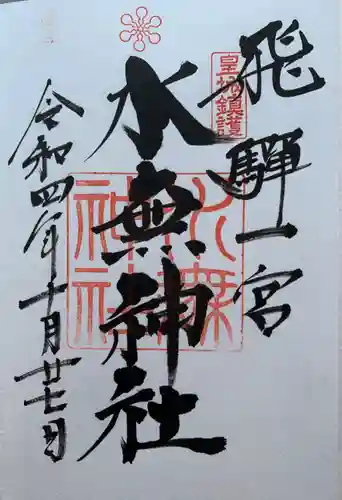 飛騨一宮
皇城鎮護
水無神社
水無神社
令和四年十月廿七日